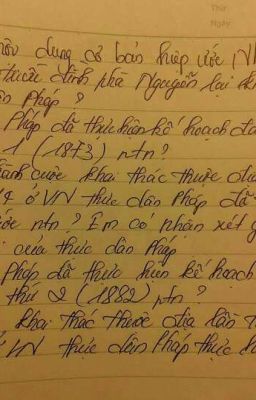 Thứ
Ngày
nội dung cơ bản hiệp ước
triều đình nhà Nguyễn lại kí
Pháp ?
Pháp đã thực hiện kế hoạch đá
1 (1873) ntn?
cuộc khai thác thuộc địa
ở VN thực dân Pháp đã
ntn? Em có nhận xét g
của thực dân Pháp
Pháp đã thực hiện kế hoạch
thứ 2 (1882) ntn?
khai thác thuộc địa lần
VN thực dân Pháp thực h